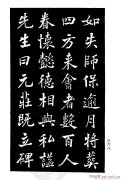 如失師保逾月將葬
四方來會者數百人
眷懷懿德相與私謚
先生曰元莊既立碑